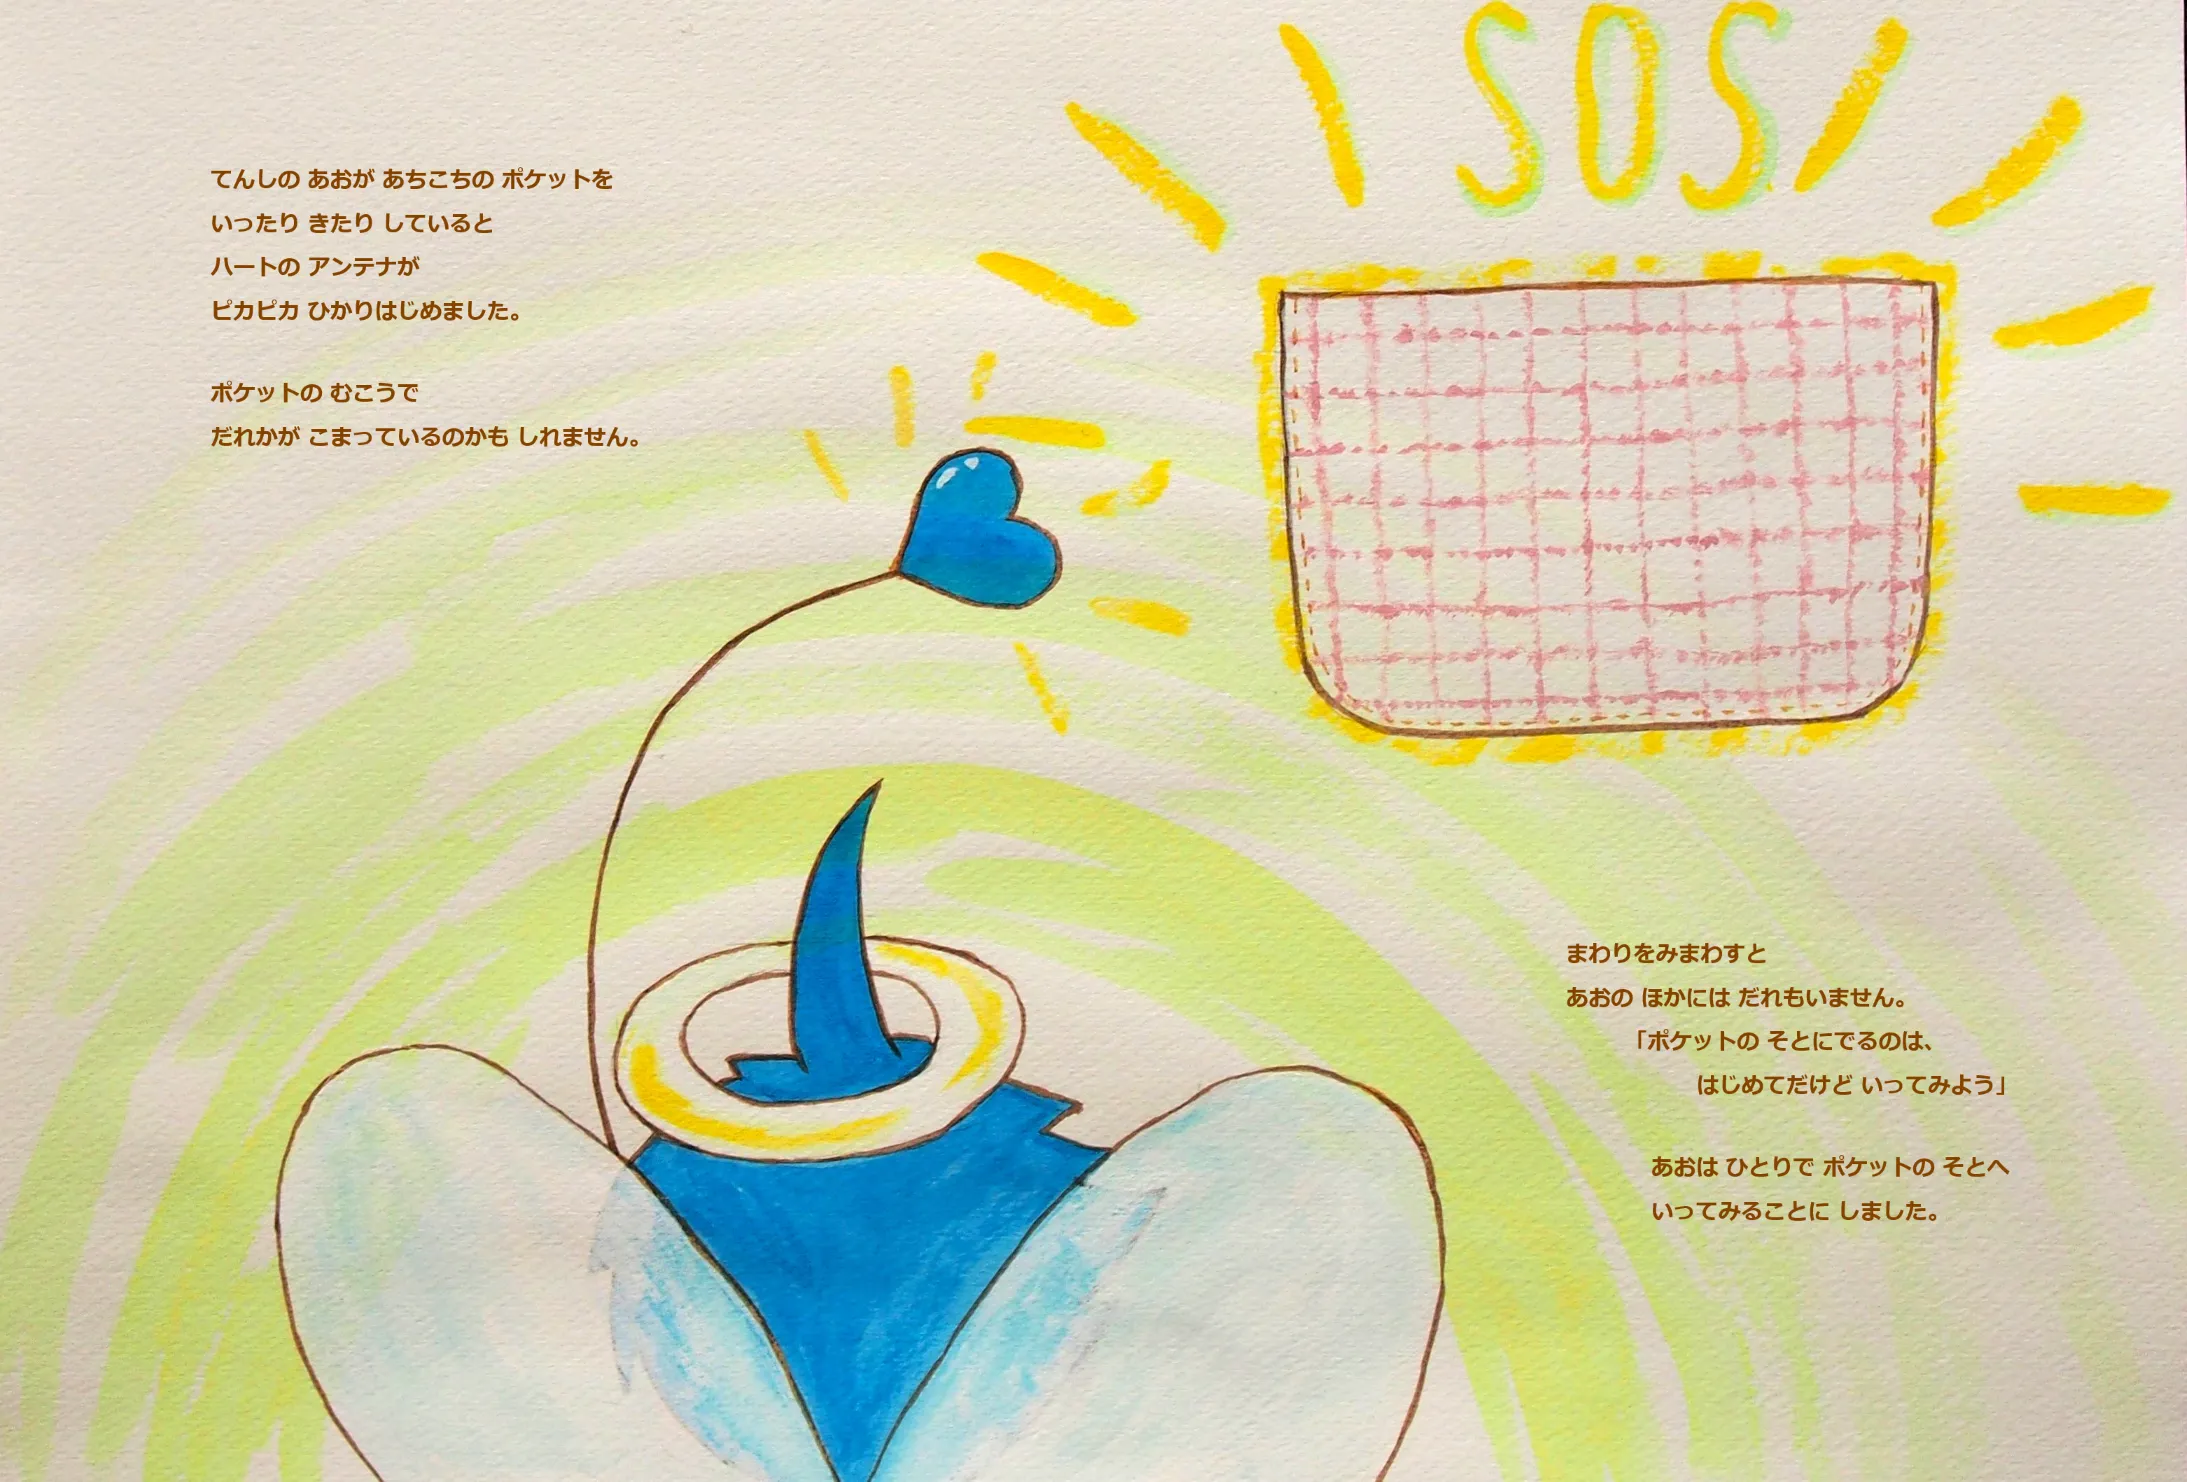 SOS
てんしの あおが あちこちの ポケットを
いったり きたり していると
ハートの アンテナが
ピカピカ ひかりはじめました。
ポケットの むこうで
だれかが こまっているのかも しれません。
まわりをみまわすと
あおの ほかには だれもいません。
「ポケットの そとにでるのは、
はじめてだけど いってみよう」
あおは ひとりで ポケットの そとへ
いってみることに しました。